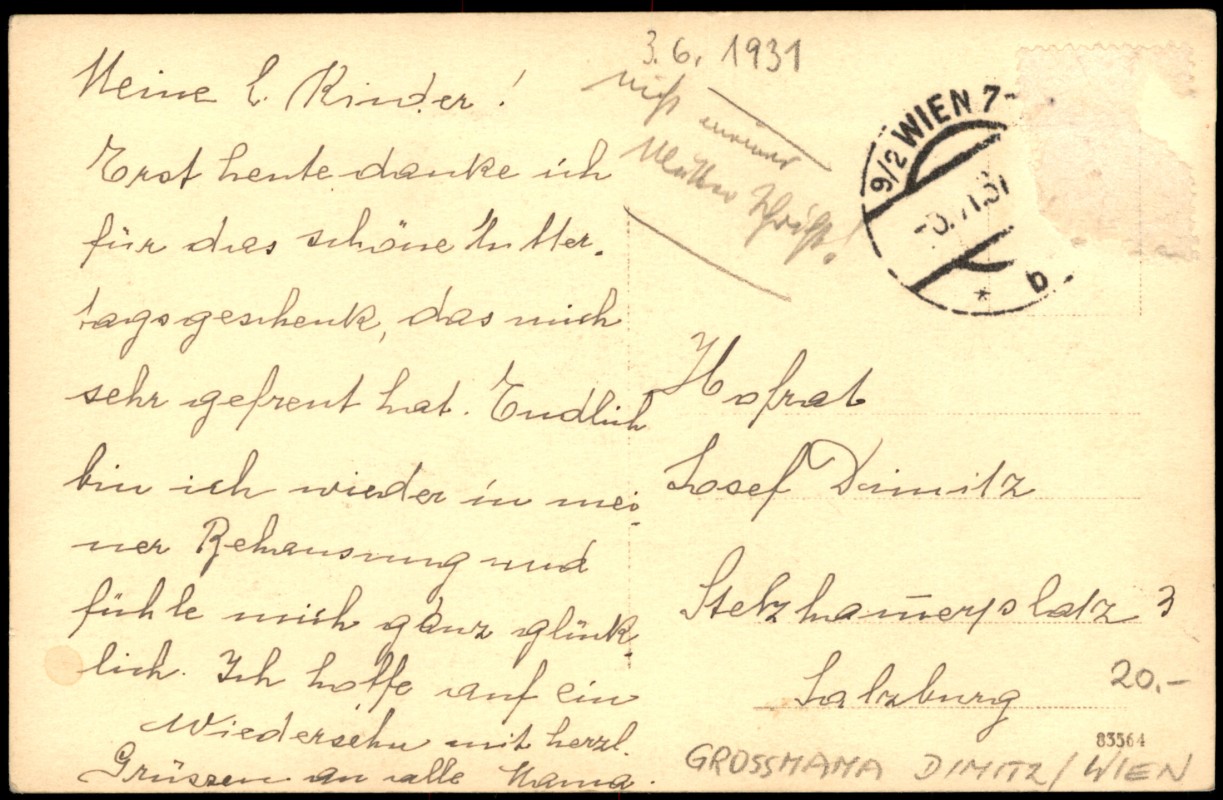 3.6. 1931
nicht
unserer
Mutter Schrift!
9/2 WIEN 7
b
Meine l. Kinder!
Erst heute danke ich
für das schöne Mutter-
tagsgeschenk, das mich
sehr gefreut hat. Endlich
bin ich wieder in mei-
ner Behausung und
fühle mich ganz glück-
lich. Ich hoffe auf ein
Wiedersehn mit herzl.
Grüssen an alle Mama.
Hofrat
Josef Dimitz
Stelzham̅erplatz 3
Salzburg
20.-
83564
GROSSMAMA DIMITZ/WIEN